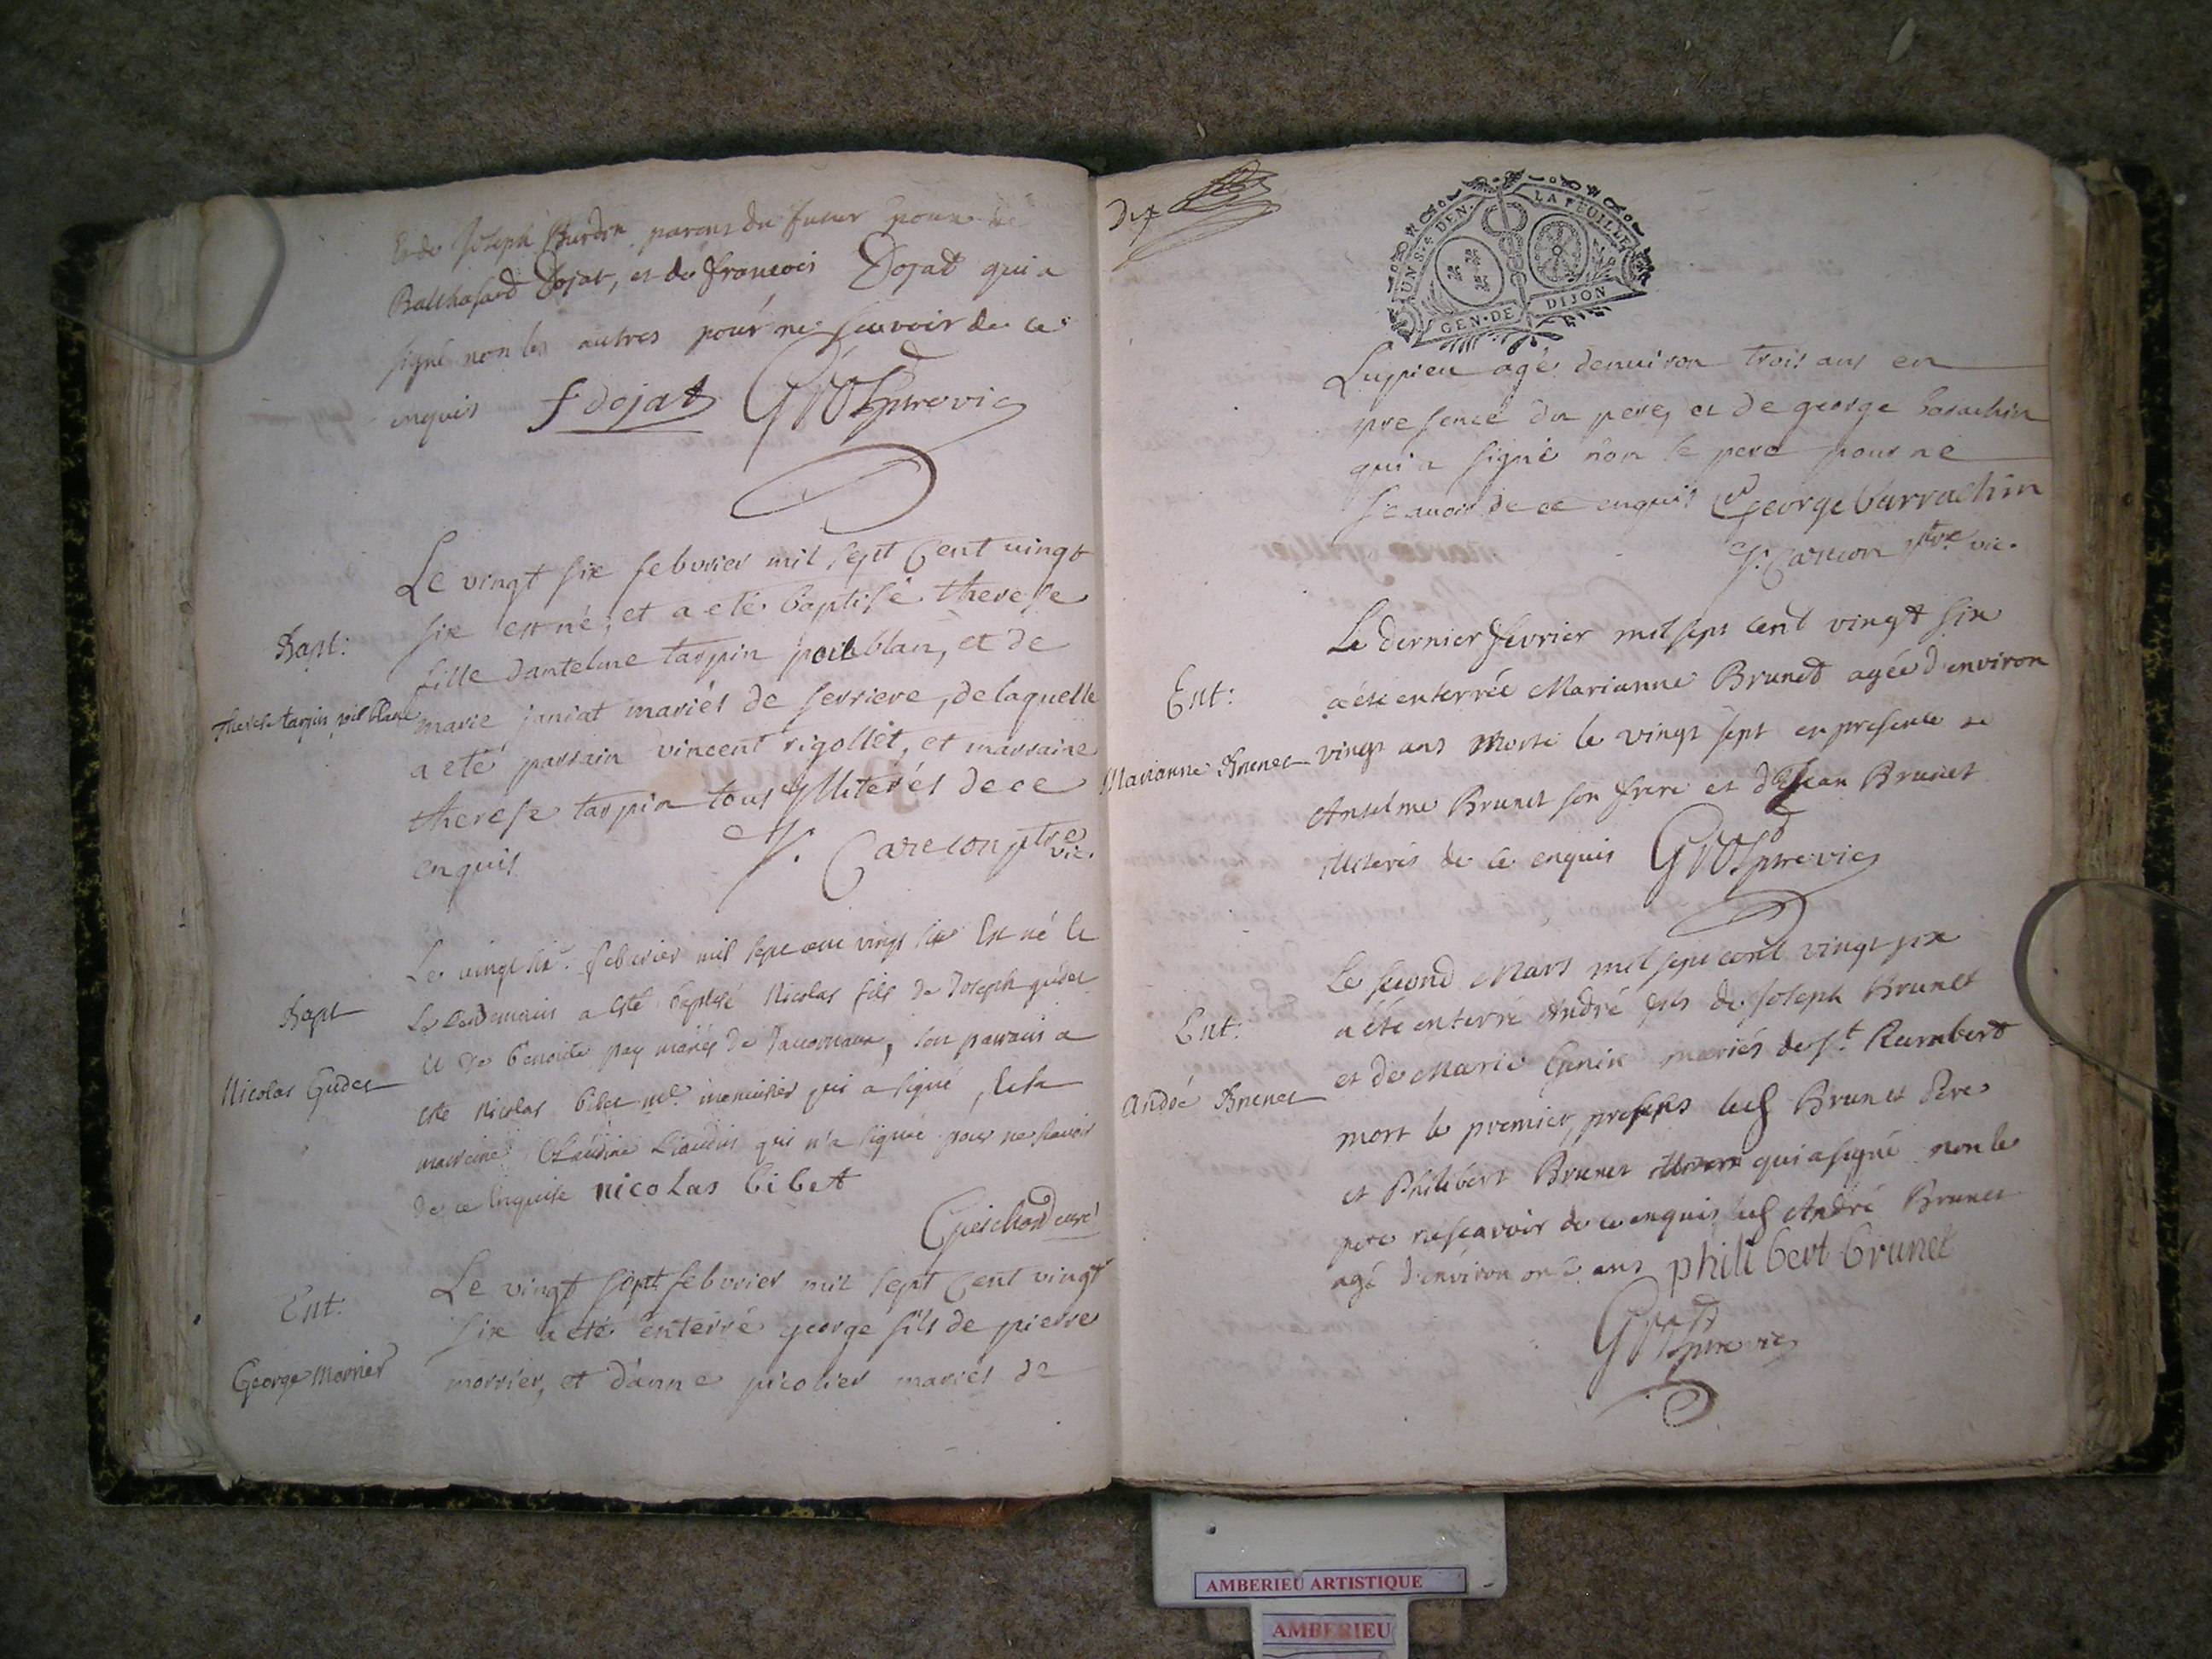 et de Joseph Burdon parens du futur epoux de
Balthasard Dojat, et de francois Dojat qui a
signé non les autres pour ne scavoir de ce
enquis f dojat
Le vingt six febvrier mil sept Cent vingt
six est né, et a eté baptisé therese
Bapt:
fille dantelme tarpin poilblan, et de
therese tarpin poil blanc
marie janiat mariés de serriere, de laquelle
a eté parrain vincent rigollet, et marraine
therese tarpin tous illiterés de ce
enquis
ptre vic.
Le vingt six febvrier mil sept cent vingt six Est né le
Bapt
Lendemain a esté baptisé Nicolas fils de Joseph gudet
et de benoite pay mariés de son parrain a
Nicolas Gudet
esté Nicolas bibet me menuisier qui a signé, Et la
marraine Claudine qui n'a signée pour ne scavoir
de ce Enquise nicolas bibet
curé
Le vingt sept febvrier mil sept Cent vingt
Ent:
six a eté enterré george fils de pierre
George Morrier
morrier, et d'anne picolier mariés de
UN S. 4 DEN. LA FEUILLE
GEN. DE DIJON
Luppieu agé denuiron trois ans en
presence du pere, et de george barachin
qui a signé non le pere pour ne
scauoir de ce enquis George barrachin
ptre vic.
Le dernier fevrier mil sept cent vingt six
Ent:
a été enterrée Marianne Brunet agée d'environ
Marianne Brunet
vingt ans Morte le vingt sept en presence de
Anselme Brunet son frere et de Jean Brunet
illiterés de ce enquis
Le second Mars mil sept cent vingt six
Ent:
a été enterré André fils de Joseph Brunet
et de Marie Genin mariés de St Rambert
André Brunet
mort le premier, presens led Brunet Pere
et Philibert Brunet qui a signé non le
pere ne scavoir de ce enquis led André Brunet
agé d'environ onze ans philibert brunet
AMBERIEU ARTISTIQUE
AMBERIEU